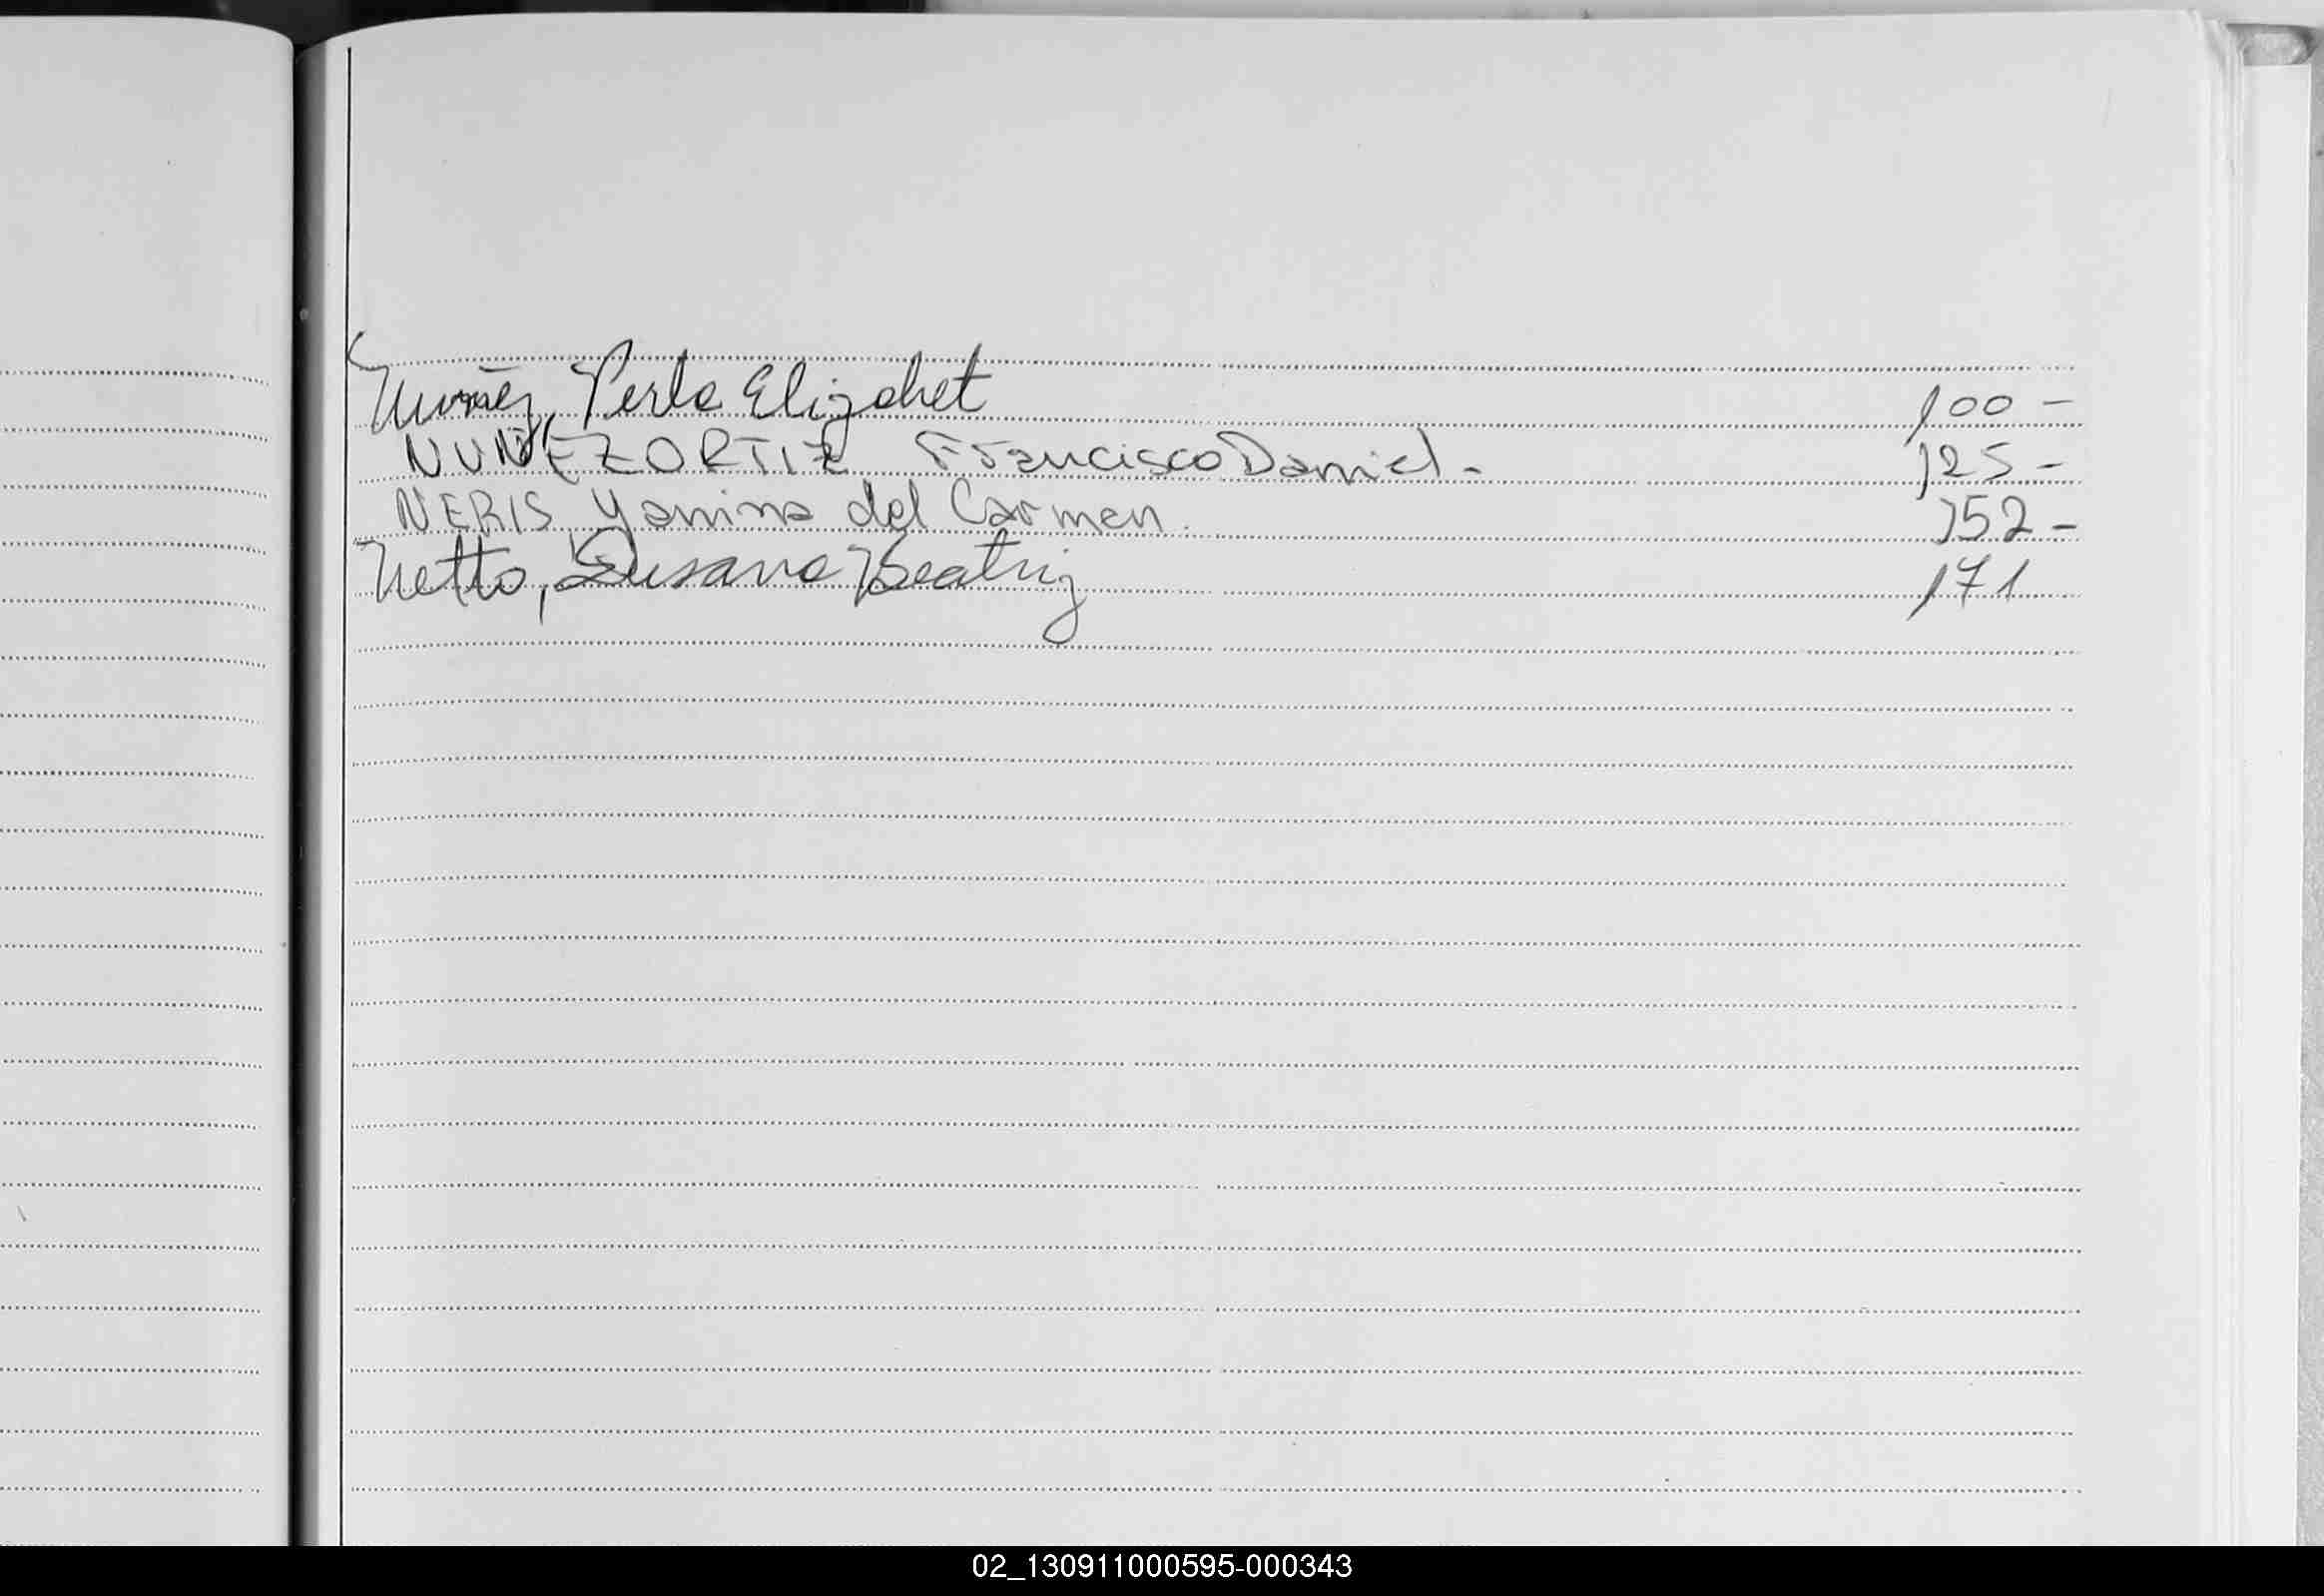 Nuñez, Perla Elizabet 100 -
NUÑEZ ORTIZ Francisco Daniel - 125 -
NERIS Yanina del Carmen. 152 -
Netto, Susana Beatriz 171
02_130911000595-000343